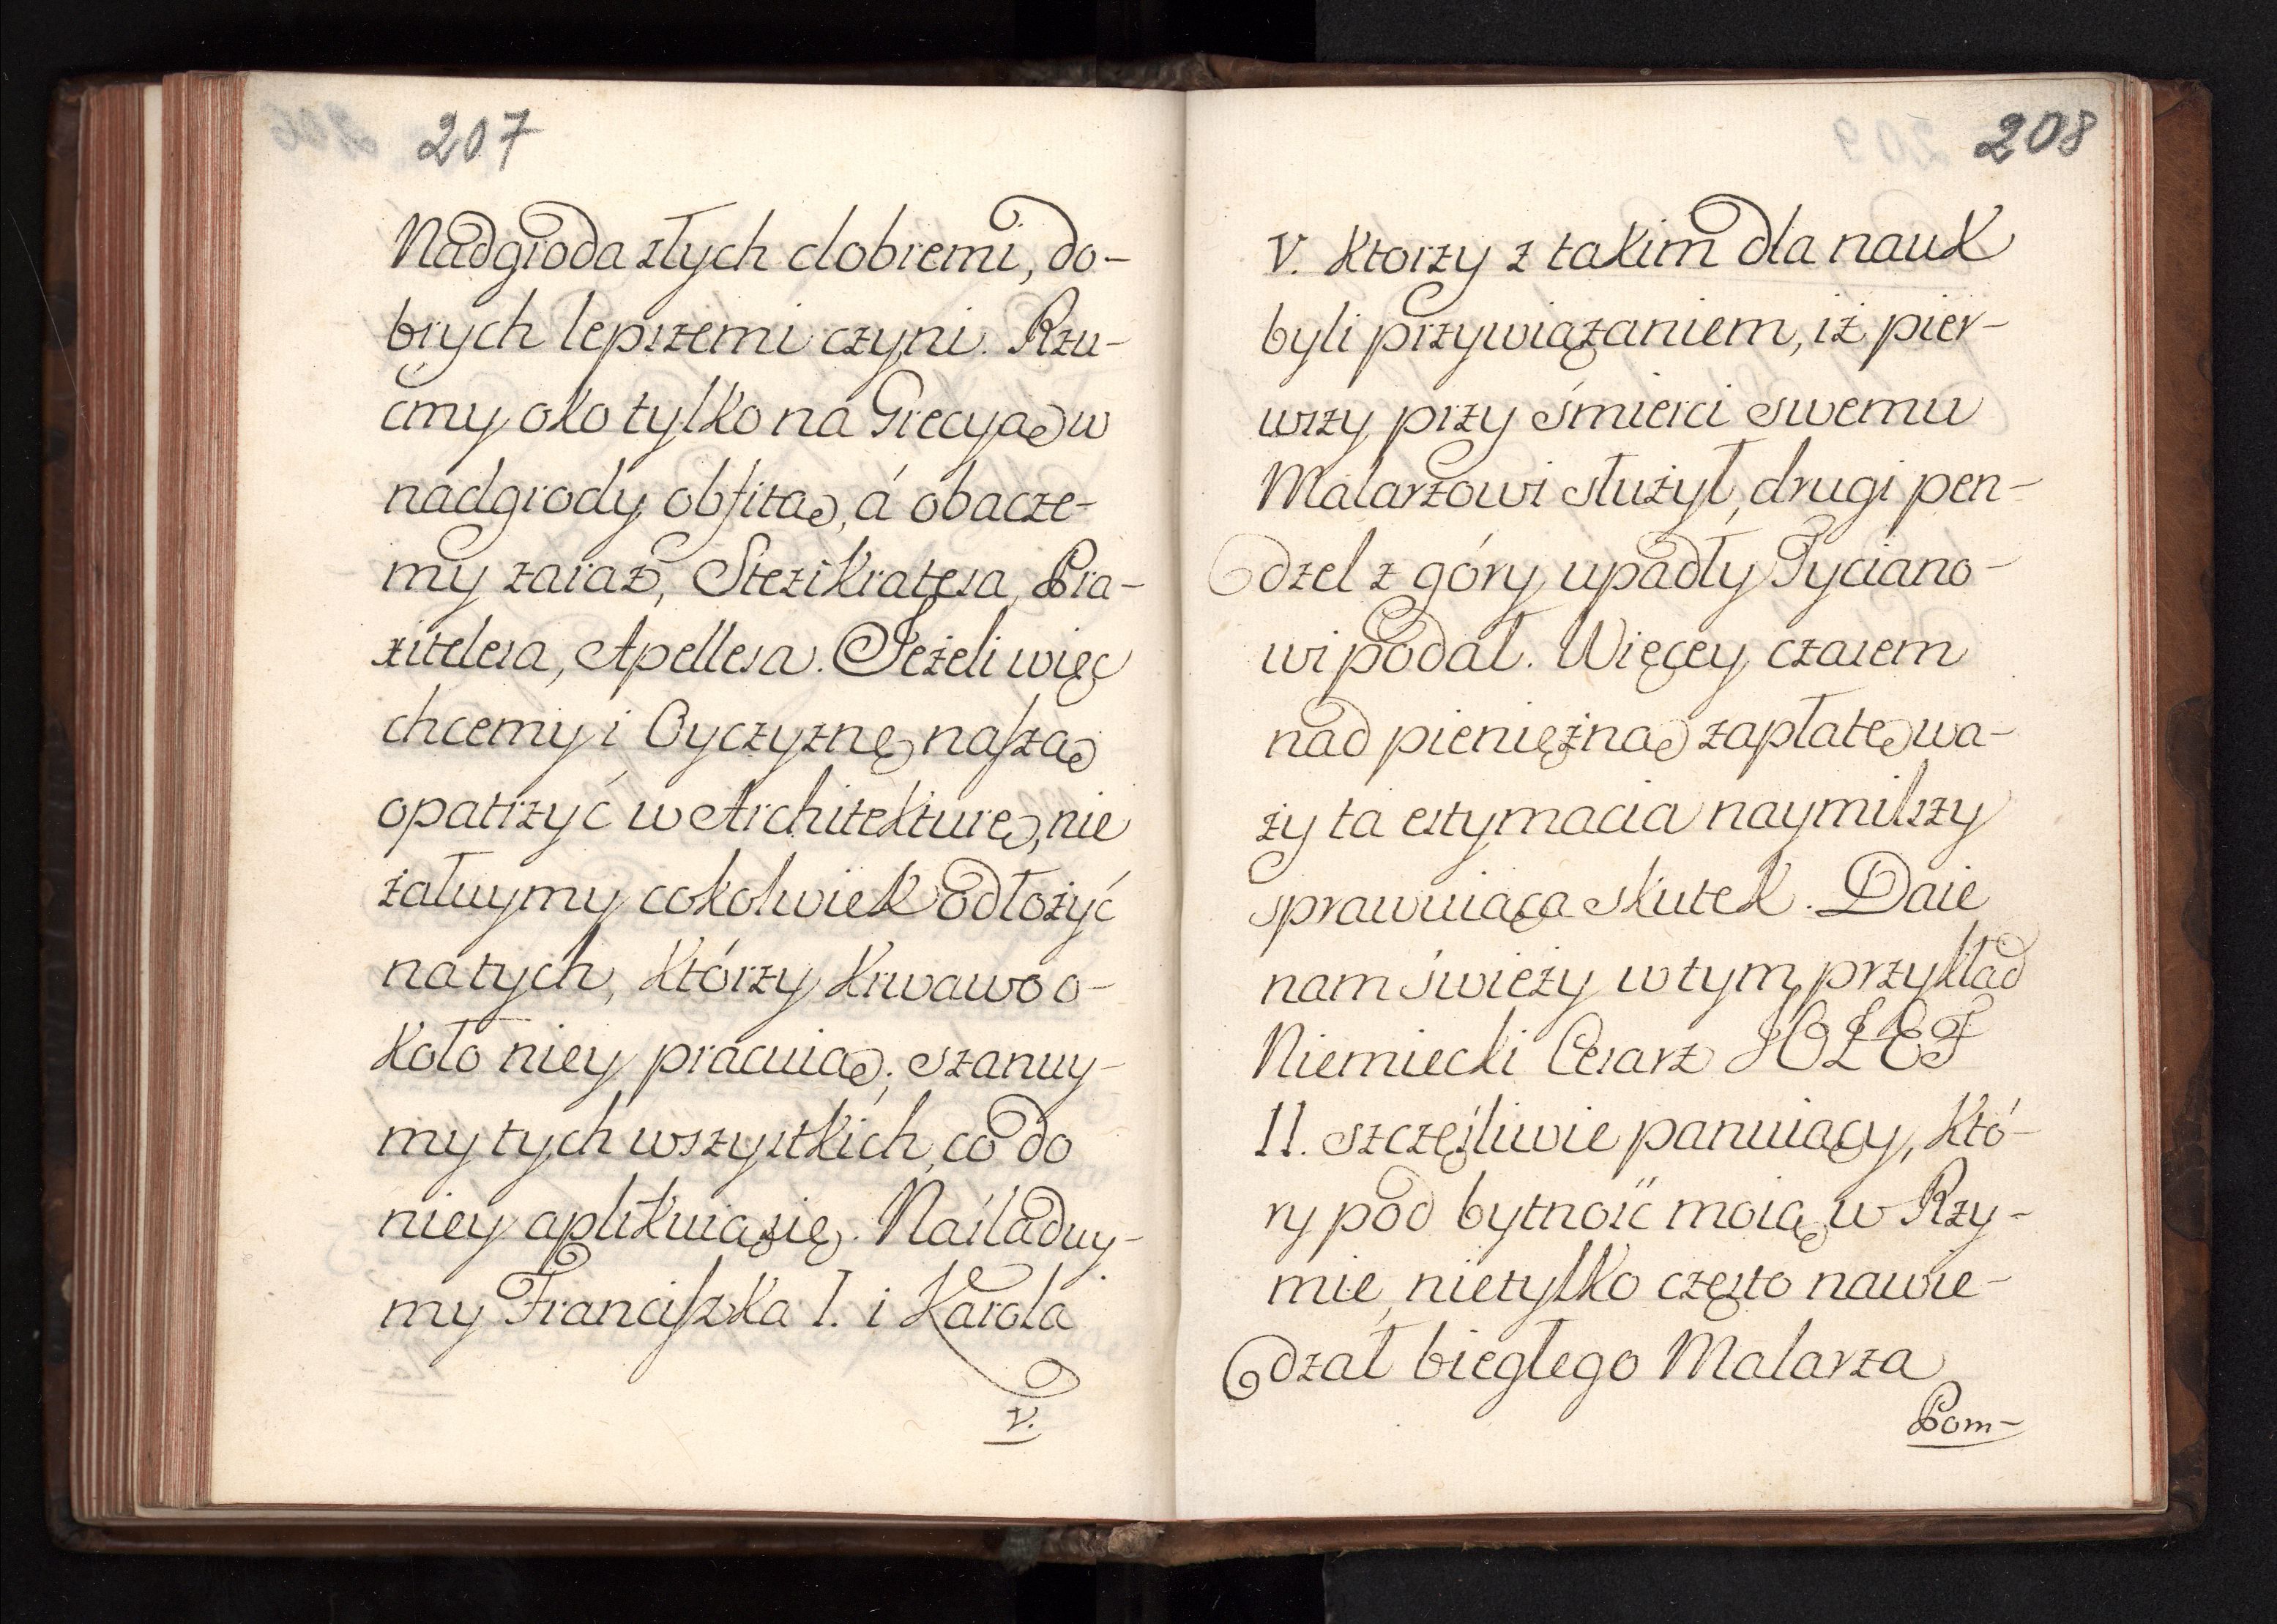 207
Nadgroda złych dobremi, do-
brych lepszemi czyni. Rzu-
ćmy oko tylko ná Grecyą w
nádgrody obfitą, á obacze-
my zaraz, Stezikratesa, Pra-
xitelesa, Apellesa. Jeżeli więc
chcemy i Oyczyznę naszą
opatrzyć w Architekturę, nie
żałuymy cokolwiek odłożyć
ná tych, którzy krwawo o-
koło niey prácuią; szanuy-
my tych wszystkich, co do
niey aplikuią się. Náśladuy-
my Franciszka I. i Karola
V.
208
V. Ktorzy z takim dla nauk
byli przywiązaniem, iż pier-
wszy przy śmierci swemu
Malarzowi służył, drugi pen-
dzel z góry upadły Tyciano-
wi podał. Więcey czasem
nad pieniężną zapłatę wa-
ży ta estymacia naymilszy
sprawuiąca skutek. Daie
nam świeży w tym przykład
Niemiecki Cesarz JOZEF
II. szczęśliwie panuiący, któ-
ry pod bytność moią w Rzy-
mie, nietylko często nawie-
dzał biegłego Malarza
Pom-